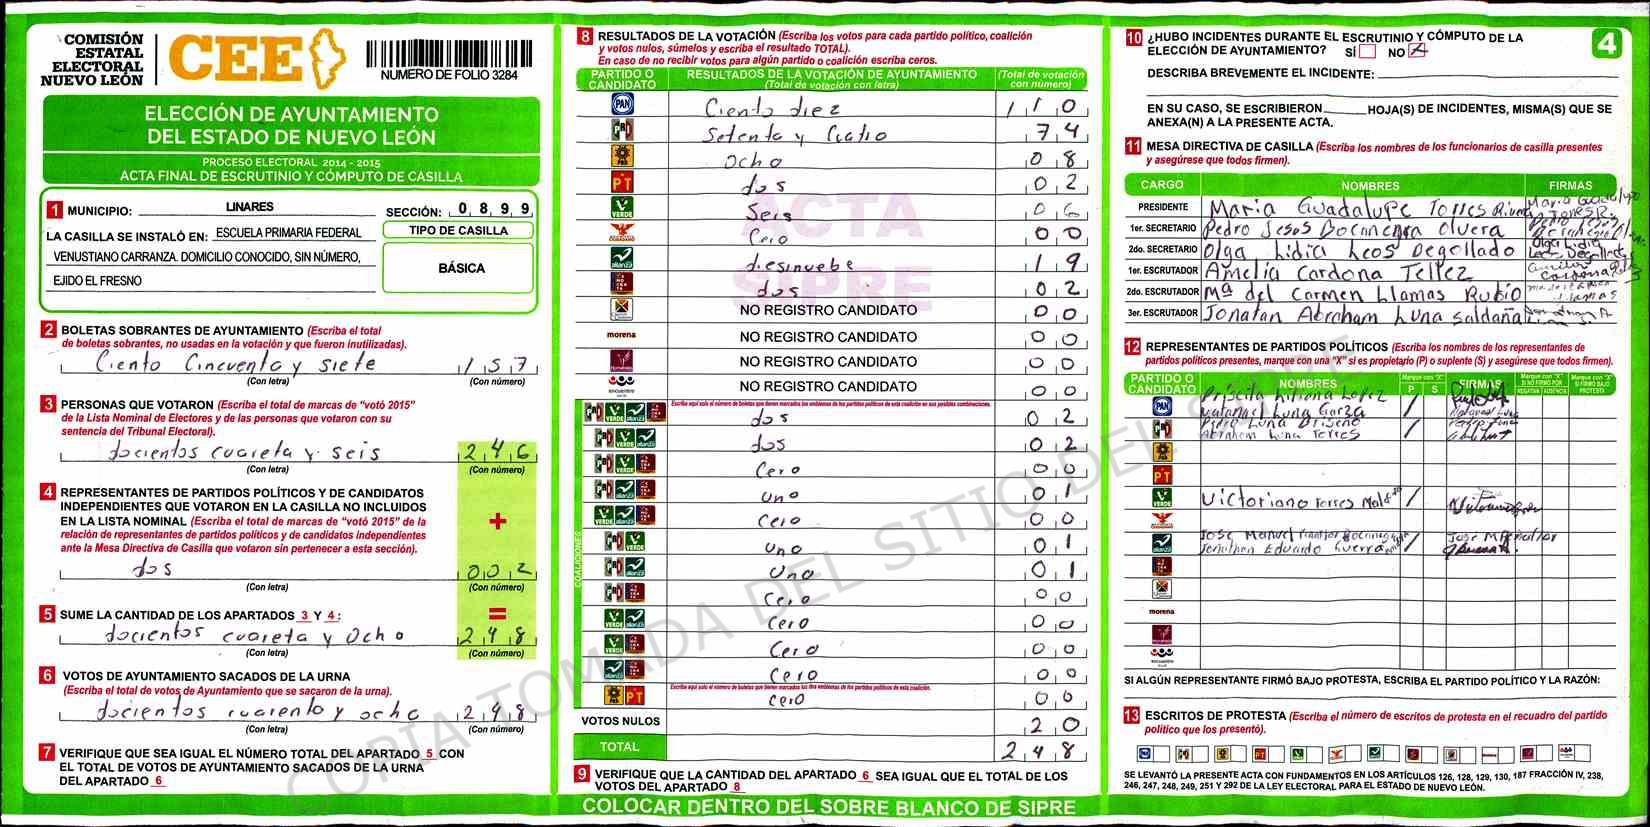 COMISIÓN
ESTATAL
ELECTORAL
NUEVO LEÓN
CEE
NUMERO DE FOLIO 3284
ELECCIÓN DE AYUNTAMIENTO
DEL ESTADO DE NUEVO LEÓN
PROCESO ELECTORAL 2014 - 2015
ACTA FINAL DE ESCRUTINIO Y CÓMPUTO DE CASILLA
1 MUNICIPIO: LINARES SECCIÓN: 0 8 9 9
LA CASILLA SE INSTALÓ EN: ESCUELA PRIMARIA FEDERAL
VENUSTIANO CARRANZA. DOMICILIO CONOCIDO, SIN NÚMERO,
EJIDO EL FRESNO
TIPO DE CASILLA
BÁSICA
2 BOLETAS SOBRANTES DE AYUNTAMIENTO (Escriba el total
de boletas sobrantes, no usadas en la votación y que fueron inutilizadas).
Ciento Cincuenta y siete 1 5 7
(Con letra) (Con número)
3 PERSONAS QUE VOTARON (Escriba el total de marcas de “votó 2015”
de la Lista Nominal de Electores y de las personas que votaron con su
sentencia del Tribunal Electoral).
docientos cuareta y seis 2 4 6
(Con letra) (Con número)
4 REPRESENTANTES DE PARTIDOS POLÍTICOS Y DE CANDIDATOS
INDEPENDIENTES QUE VOTARON EN LA CASILLA NO INCLUIDOS
EN LA LISTA NOMINAL (Escriba el total de marcas de “votó 2015” de la
relación de representantes de partidos políticos y de candidatos independientes
ante la Mesa Directiva de Casilla que votaron sin pertenecer a esta sección).
+
dos 0 0 2
(Con letra) (Con número)
5 SUME LA CANTIDAD DE LOS APARTADOS 3 Y 4:
=
docientos cuareta y Ocho 2 4 8
(Con letra) (Con número)
6 VOTOS DE AYUNTAMIENTO SACADOS DE LA URNA
(Escriba el total de votos de Ayuntamiento que se sacaron de la urna).
docientos cuarenta y ocho 2 4 8
(Con letra) (Con número)
7 VERIFIQUE QUE SEA IGUAL EL NÚMERO TOTAL DEL APARTADO 5 CON
EL TOTAL DE VOTOS DE AYUNTAMIENTO SACADOS DE LA URNA
DEL APARTADO 6
8 RESULTADOS DE LA VOTACIÓN (Escriba los votos para cada partido político, coalición
y votos nulos, súmelos y escriba el resultado TOTAL).
En caso de no recibir votos para algún partido o coalición escriba ceros.
PARTIDO O CANDIDATO
RESULTADOS DE LA VOTACIÓN DE AYUNTAMIENTO
(Total de votación con letra)
(Total de votación con número)
PAN Ciento diez 1 1 0
PRI Setenta y Cuatro 7 4
PRD Ocho 0 8
PT dos 0 2
VERDE Seis 0 6
Cero 0 0
alianza diesinuebe 1 9
dos 0 2
NO REGISTRO CANDIDATO 0 0
morena NO REGISTRO CANDIDATO 0 0
NO REGISTRO CANDIDATO 0 0
encuentro NO REGISTRO CANDIDATO 0 0
COALICIONES
Escriba aquí solo el número de boletas que tienen marcados los emblemas de los partidos políticos de esta coalición en sus posibles combinaciones.
dos 0 2
dos 0 2
Cero 0 0
uno 0 1
Cero 0 0
uno 0 1
Uno 0 1
Cero 0 0
Cero 0 0
Cero 0 0
Cero 0 0
Escriba aquí solo el número de boletas que tienen marcados los dos emblemas de los partidos políticos de esta coalición.
cero 0 0
VOTOS NULOS 2 0
TOTAL 2 4 8
9 VERIFIQUE QUE LA CANTIDAD DEL APARTADO 6 SEA IGUAL QUE EL TOTAL DE LOS
VOTOS DEL APARTADO 8
COLOCAR DENTRO DEL SOBRE BLANCO DE SIPRE
ACTA
SIPRE
COPIA TOMADA DEL SITIO DEL SIPRE
10 ¿HUBO INCIDENTES DURANTE EL ESCRUTINIO Y CÓMPUTO DE LA
ELECCIÓN DE AYUNTAMIENTO? SÍ NO X
4
DESCRIBA BREVEMENTE EL INCIDENTE:
EN SU CASO, SE ESCRIBIERON HOJA(S) DE INCIDENTES, MISMA(S) QUE SE
ANEXA(N) A LA PRESENTE ACTA.
11 MESA DIRECTIVA DE CASILLA (Escriba los nombres de los funcionarios de casilla presentes
y asegúrese que todos firmen).
CARGO NOMBRES FIRMAS
PRESIDENTE Maria Guadalupe Torres
1er. SECRETARIO Pedro Jesus Olvera
2do. SECRETARIO Olga Lidia Leos Degollado
1er. ESCRUTADOR Amelia Cardona Tellez
2do. ESCRUTADOR Mª del Carmen Llamas Rubio
3er. ESCRUTADOR Jonatan Abraham Luna Saldaña
12 REPRESENTANTES DE PARTIDOS POLÍTICOS (Escriba los nombres de los representantes de
partidos políticos presentes, marque con una “X” si es propietario (P) o suplente (S) y asegúrese que todos firmen).
PARTIDO O CANDIDATO NOMBRES Marque con "X" P S FIRMAS Marque con "X" SI NO FIRMÓ POR NEGATIVA AUSENCIA Marque con "X" SI FIRMÓ BAJO PROTESTA
Priscila Liliana Lopez
PAN Natanael Luna Garza
Pedro Luna Briseño
Abraham Luna Torres
Victoriano Torres
Jose Manuel
Jonathan Eduardo Guerra
morena
SI ALGÚN REPRESENTANTE FIRMÓ BAJO PROTESTA, ESCRIBA EL PARTIDO POLÍTICO Y LA RAZÓN:
13 ESCRITOS DE PROTESTA (Escriba el número de escritos de protesta en el recuadro del partido
político que los presentó).
SE LEVANTÓ LA PRESENTE ACTA CON FUNDAMENTOS EN LOS ARTÍCULOS 126, 128, 129, 130, 187 FRACCIÓN IV, 238,
246, 247, 248, 249, 251 Y 292 DE LA LEY ELECTORAL PARA EL ESTADO DE NUEVO LEÓN.